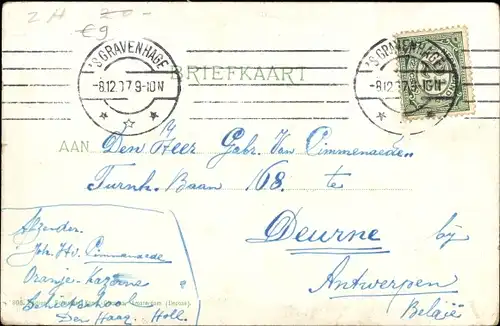 2 H 20 -
€9
'S GRAVENHAGE
-8.12.17.9-10N
'S GRAVENHAGE
-8.12.17.9-10N
BRIEFKAART
AAN Den Heer Gabr. Van Pimmenaede
Turnh. Baan 168. te
Deurne bij
Antwerpen
België
Afzender
Joh. Hv. Pimmenaede
Oranje-Kazerne
Schietschool
Den Haag. Holl.